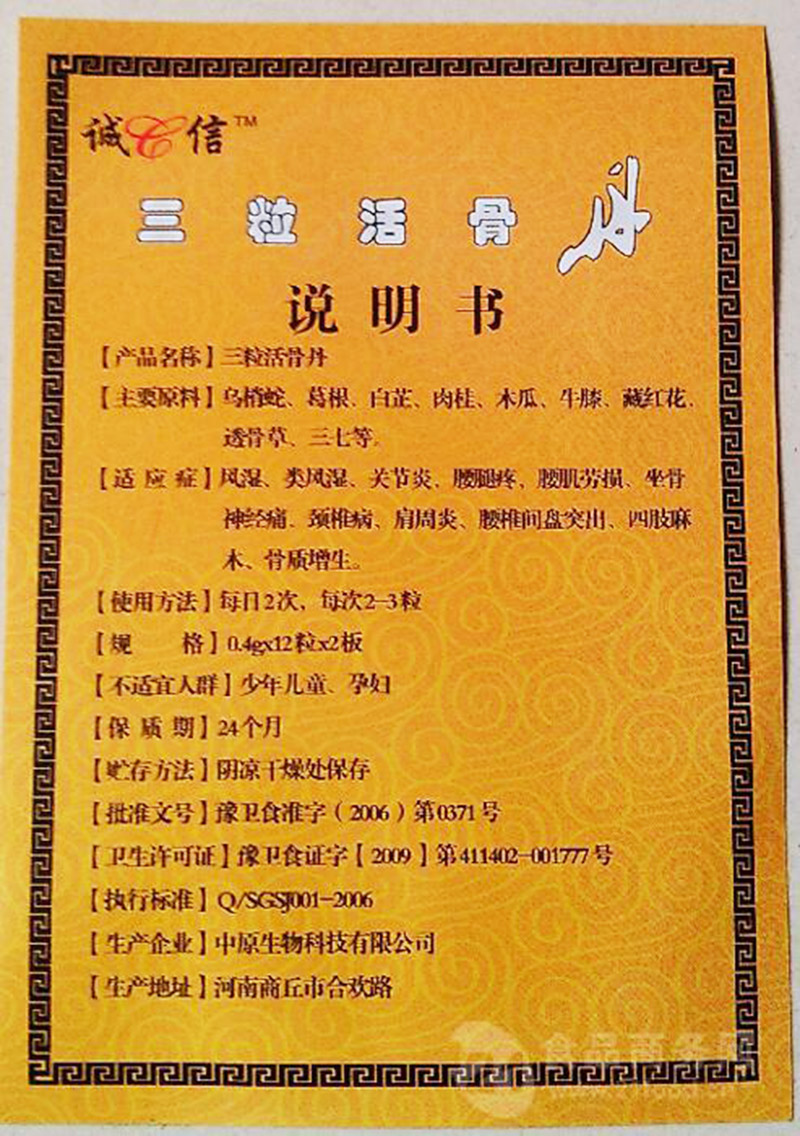 诚信™
三粒活骨丹
说明书
【产品名称】三粒活骨丹
【主要原料】乌梢蛇、葛根、白芷、肉桂、木瓜、牛膝、藏红花、
透骨草、三七等。
【适应症】风湿、类风湿、关节炎、腰腿疼、腰肌劳损、坐骨
神经痛、颈椎病、肩周炎、腰椎间盘突出、四肢麻
木、骨质增生。
【使用方法】每日2次，每次2-3粒
【规 格】0.4gx12粒x2板
【不适宜人群】少年儿童、孕妇
【保质期】24个月
【贮存方法】阴凉干燥处保存
【批准文号】豫卫食准字（2006）第0371号
【卫生许可证】豫卫食证字【2009】第411402-001777号
【执行标准】Q/SGSJ001-2006
【生产企业】中原生物科技有限公司
【生产地址】河南商丘市合欢路
食品商务网